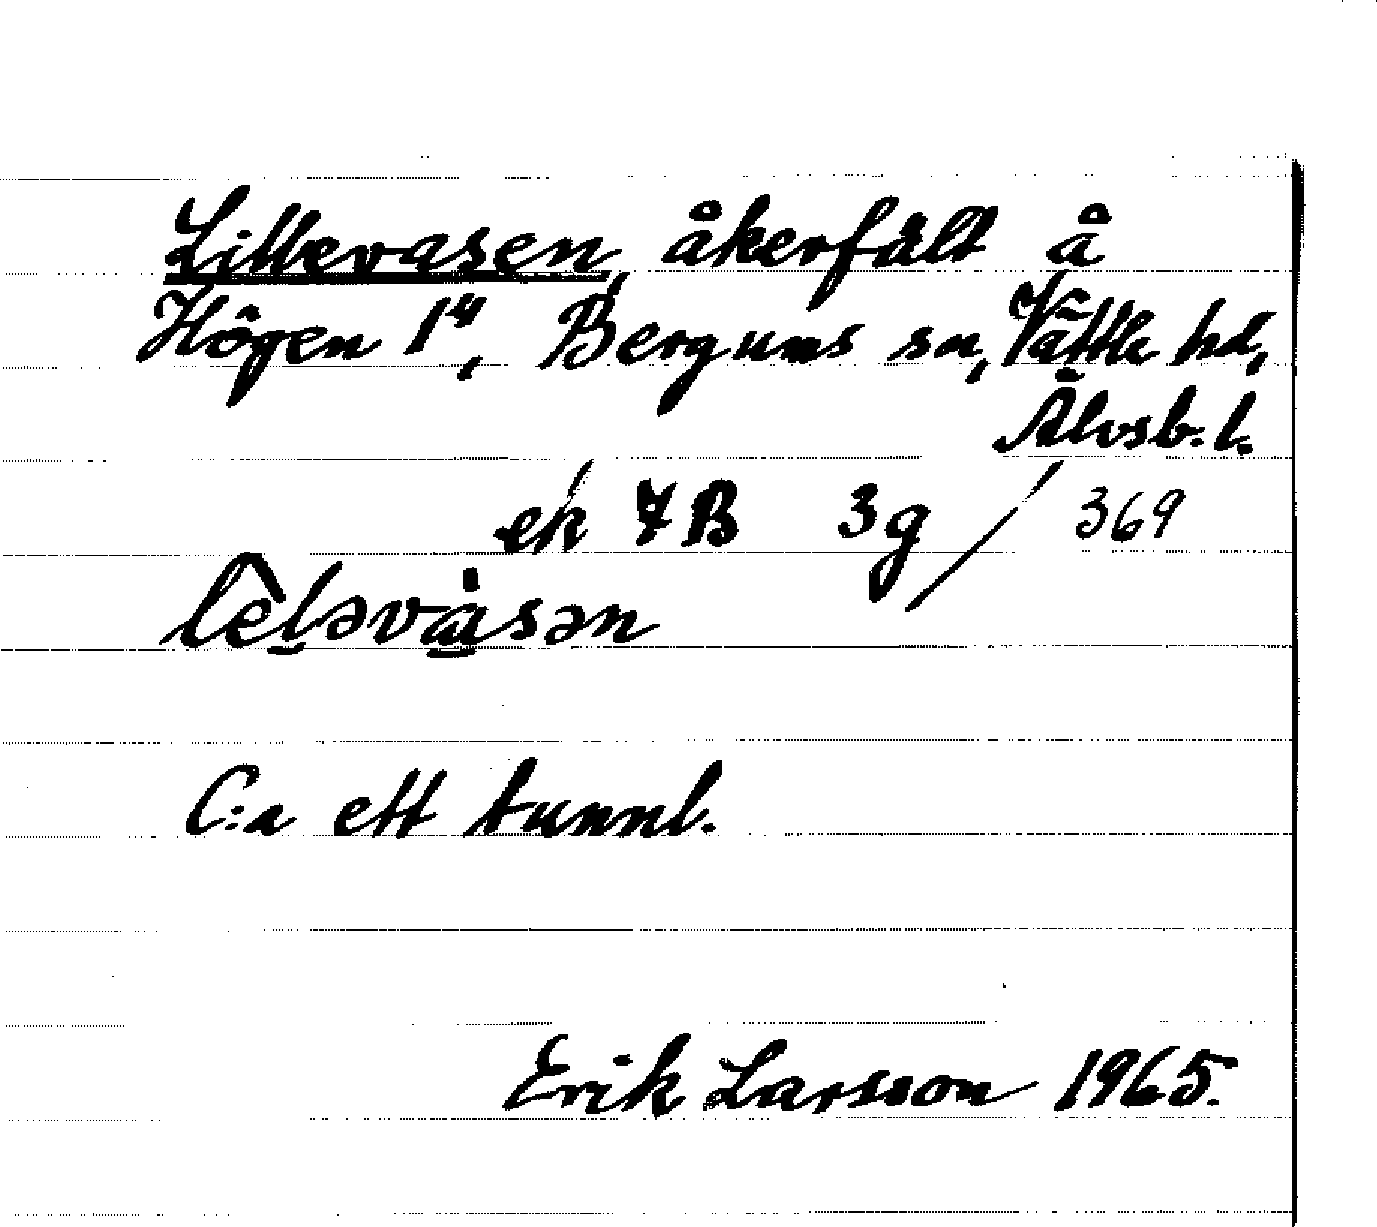 Lillevasen, åkerfält å
Högen 1⁴, Bergums sn, Vättle hd,
Älvsb. l.
ek 7B 3g / 369
C:a ett tunnl.
Erik Larsson 1965.